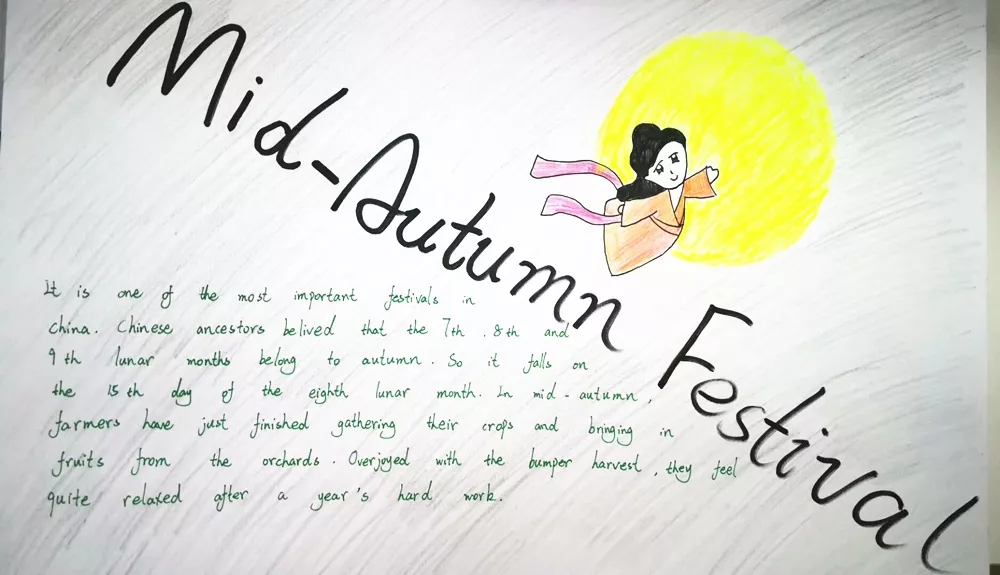 Mid-Autumn Festival
It is one of the most important festivals in
china. Chinese ancestors belived that the 7th, 8th and
9th lunar months belong to autumn. So it falls on
the 15th day of the eighth lunar month. In mid-autumn,
farmers have just finished gathering their crops and bringing in
fruits from the orchards. Overjoyed with the bumper harvest, they feel
quite relaxed after a year's hard work.